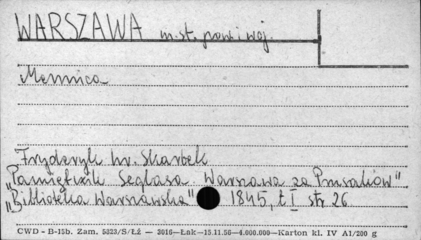 WARSZAWA m.st. pow. i woj.
Mennica
Fryderyk hr. Skarbek
„Pamiętnik Seglasa. Warszawa za Prusaków"
„Biblioteka Warszawska" 1845, t. I str. 26.
CWD - B-15b. Zam. 5323/S/Łż — 3016—Łak—15.11.56—4.000.000—Karton kl. IV A1/200 g